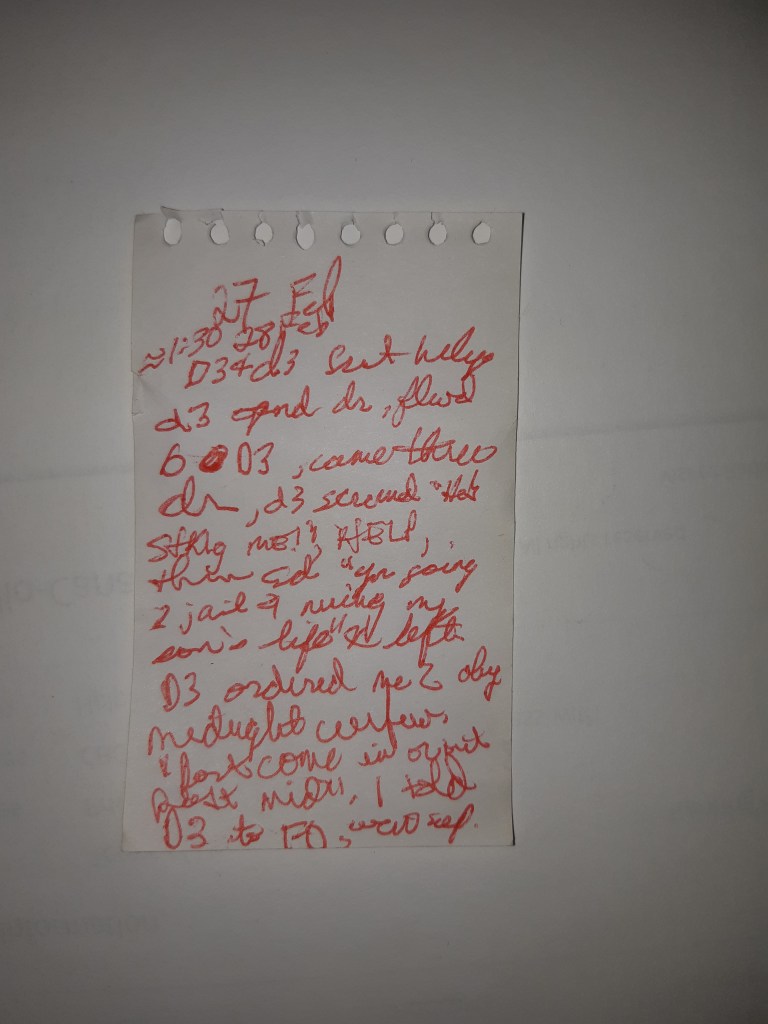 27 Feb
≈1:30 28 Feb
D3+d3
d3 opnd dr, flwd
b D3, came thru
dr, d3 scremd "He's
stkng me!", HELP,
then sd "yr going
2 jail 4 ruing my
son's life" & left
D3 ordired me 2 oby
midnight curfew.
"Don't come in or out
past mid", I told
D3 to FO,